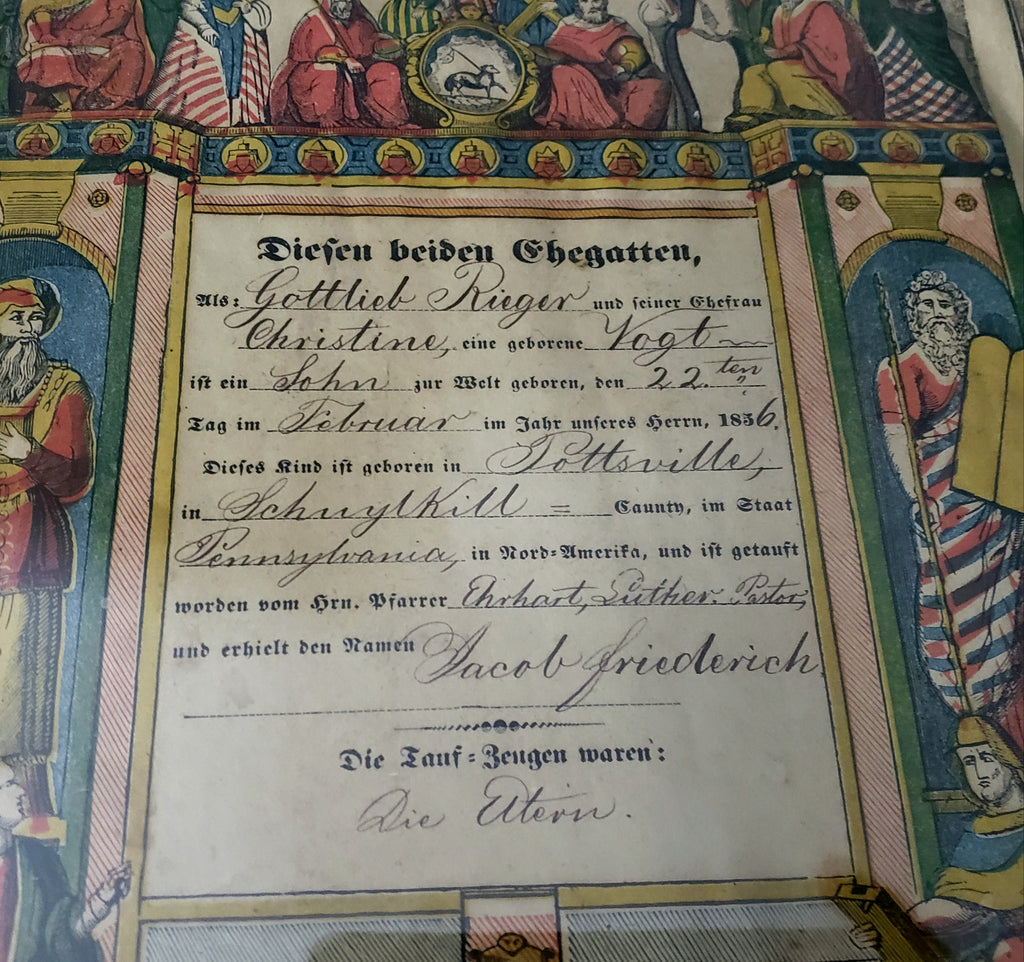 Diesen beiden Ehegatten,
Als: Gottlieb Rieger und seiner Ehefrau
Christine, eine geborene Vogt
ist ein Sohn zur Welt geboren, den 22.ten
Tag im Februar im Jahr unseres Herrn, 1856.
Dieses Kind ist geboren in Pottsville,
in Schuylkill = Caunty, im Staat
Pennsylvania, in Nord=Amerika, und ist getauft
worden vom Hrn. Pfarrer Ehrhart, Luther. Pastor,
und erhielt den Namen Jacob Friederich
Die Tauf=Zeugen waren:
Die Eltern.